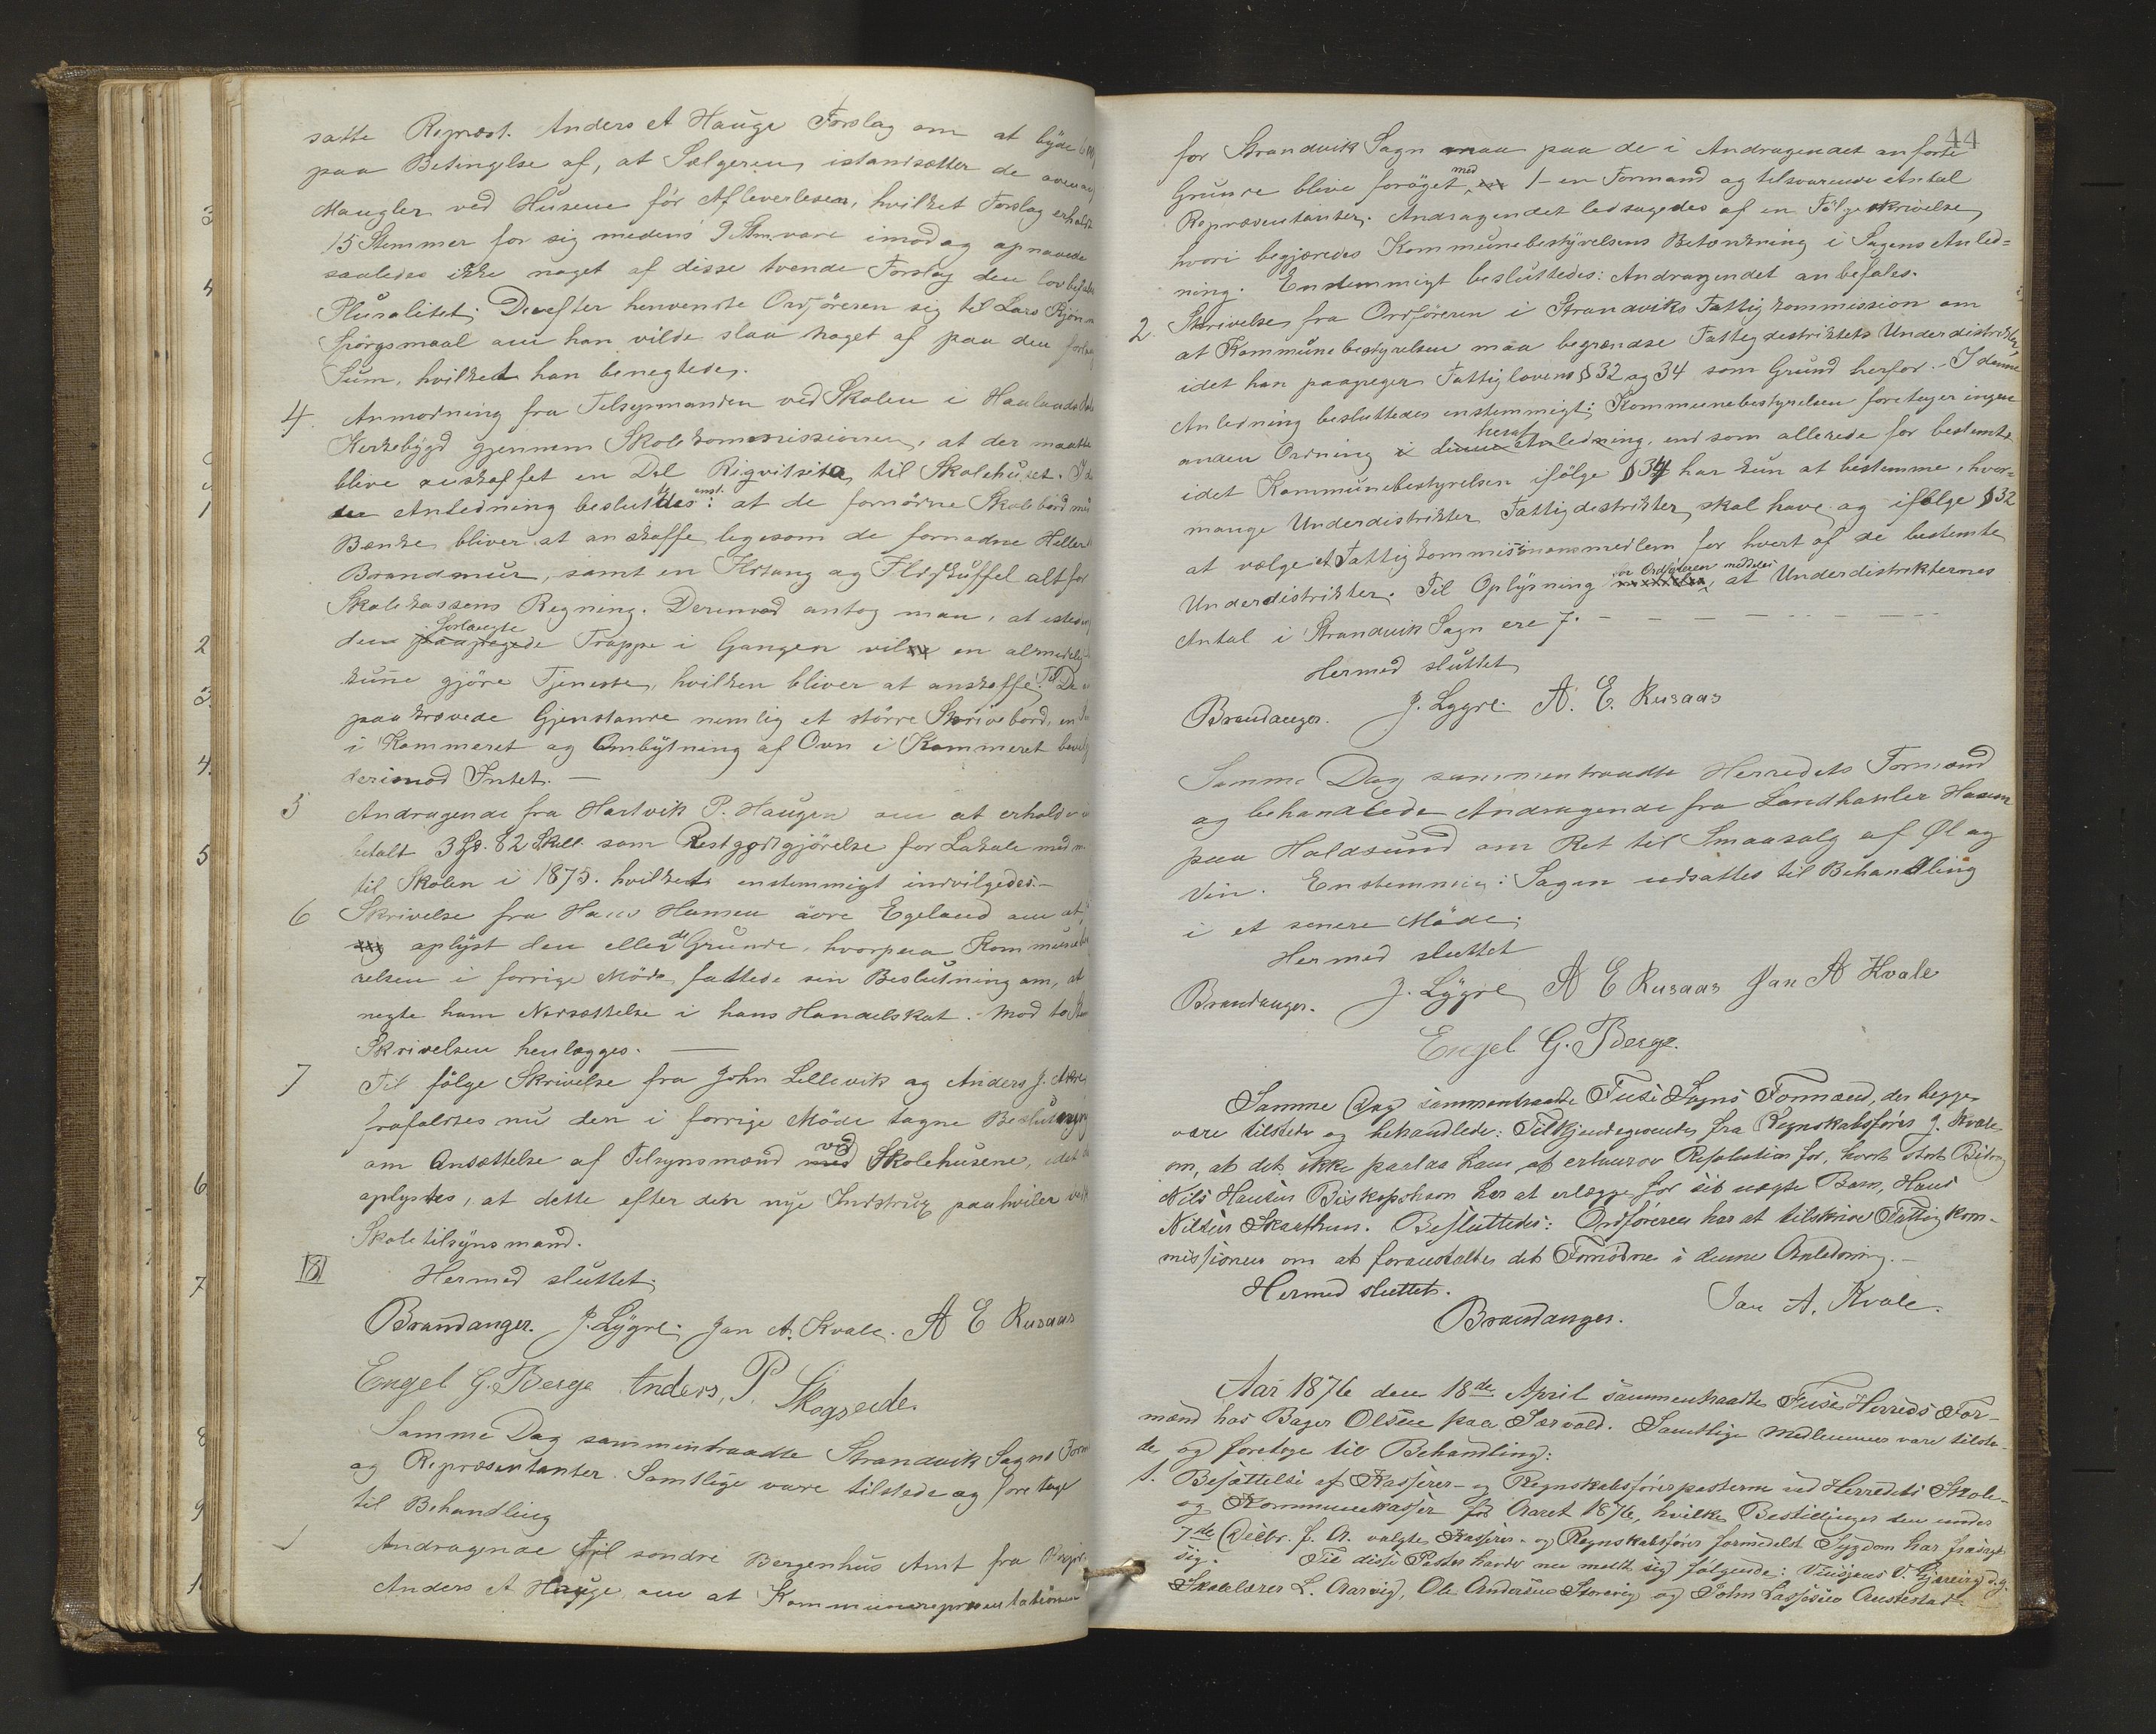 satte Repræst. Anders A Hauge Forslag om at byde
paa Betingelse af, at Sælgeren istandsætter de
Mangler ved Husene før Afleverlesen, hvilket Forslag erholdt
15 Stemmer for sig medens 9 Stm. vare imod og opnaaede
saaledes ikke noget af disse tvende Forslag den lovbefalede
Pluralitet. Derefter henvendte Ordføreren sig til Lars
Spørgsmaal om han vilde slaa noget af paa den
Sum, hvilket han benegtede.
4. Anmodning fra Tilsynmanden ved Skolen i Haalands
Kirkebygd gjennem Skolekommissionen, at der maatte
blive anskaffet en Del Reqvisita til Skolehuset. I
Anledning besluttedes enst.: at de fornødne Skolebord med
Bænke bliver at anskaffe ligesom de fornødne Heller
Brandmur, samt en Ildtang og Ildskuffel alt for
Skolekassens Regning. Derimod antog man, at istedenf
den forlangte Trappe i Gangen vil en almindelig
kunne gjøre Tjeneste, hvilken bliver at anskaffe. Til De
paakrævede Gjenstande nemlig et større Skrivebord, en
i Kammeret og Ombytning af Ovn i Kammeret
derimod Intet. —
5 Andragende fra Hartvik P. Haugen om at erholde
betalt 3 Spd. 82 Skill som Restgodtgjørelse for Lokale
til Skolen i 1875. hvilket enstemmigt indvilgedes. —
6 Skrivelse fra Hans Hansen øvre Egeland om at
oplyst den eller de Grunde, hvorpaa Kommunebesty
relsen i forrige Møde fattede sin Beslutning om, at
negte ham Nedsættelse i hans Handelskat. Mod to
Skrivelsen henlægges. —
7 Til følge Skrivelse fra John Lillevik og Anders J.
frafaldtes nu den i forrige Møde tagne Beslutning
om Ansættelse af Tilsynsmænd ved Skolehusene, idet
oplystes, at dette efter den nye Instrux paahviler
Skoletilsynsmænd.
8 Hermed sluttet.
Brandanger. J. Lygre. Jan A. Kvale. A E Rusaas
Engel G. Berge Anders P. Skogseide.
Samme Dag sammentraadte Strandvik Sogns Form
og Repræsentanter. Samtlige vare tilstede og foretoge
til Behandling
1 Andragende til søndre Bergenhus Amt fra
Anders A Hauge om at Kommunerepræsentationen
44
for Strandvik Sogn maa paa de i Andragendet anførte
Grunde blive forøget med 1 – en Formand og tilsvarende Antal
Repræsentanter. Andragendet ledsagedes af en Følgeskrivelse,
hvori begjæredes Kommunebestyrelsens Betænkning i Sagens Anled=
ning. Enstemmigt besluttedes: Andragendet anbefales.
2. Skrivelse fra Ordføreren i Strandviks Fattigkommission om
at Kommunebestyrelsen maa begrændse Fattigdestriktets Underdistrikter,
idet han paapeger Fattiglovens § 32 og 34 som Grund herfor. I denne
Anledning besluttedes enstemmigt: Kommunebestyrelsen foretager ingen
anden Ordning heraf, end som allerede før bestemte,
idet Kommunebestyrelsen ifølge § 34 har kun at bestemme, hvor=
mange Underdistrikter Fattigdestrikter skal have og ifølge § 32
at vælge et Fattigkommissionsmedlem for hvert af de bestemte
Underdistrikter. Til Oplysning for Ordføreren meddeles, at Underdistrikternes
Antal i Strandvik Sogn ere 7. – – – – – –
Hermed sluttet
Brandanger. J. Lygre. A. E. Rusaas
Samme Dag sammentraadte Herredets Formænd
og behandlede Andragende fra Landhanler Hansen
paa Holdsund om Ret til Smaasalg af Øl og
Vin. Enstemmig: Sagen udsattes til Behandling
i et senere Møde.
Hermed sluttet
Brandanger. J. Lygre A E Rusaas Jan A Kvale
Engel G. Berge.
Samme Dag sammentraadte Fuse Sogns Formænd, der begge
vare tilstede og behandlede: Tilkjendegivende fra Regnskabsfører J. Kvale
om, at det ikke paalaa ham at erhverve Resolution for, hvort stort Bidrag
Nils Hansen Biskopshavn har at erlægge for sit uægte Barn, Hans
Nilsen Skaathun. Besluttedes: Ordføreren har at tilskrive Fattigkom-
missionen om at foranstalte det Fornødne i denne Anledning. —
Hermed sluttet.
Brandanger. Jan A. Kvale.
Aar 1876 den 18de April sammentraadte Fuse Herreds For-
mænd hos Bager Olsen paa Sævold. Samtlige Medlemmer vare tilste-
de og foretoge til Behandling:
1. Besættelse af Kasserer- og Regnskabsførerposterne ved Herredets Skole-
og Kommunekasser for Aaret 1876, hvilke Bestillinger den under
7de Decbr. f. A. valgte Kasserer- og Regnskabsfører formedelst Sygdom har frasagt
sig. Til disse Poster havde nu meldt sig følgende:
Skolelærer L. Aarvig, Ole Andersen Storevig og John Lassesen Austestad.